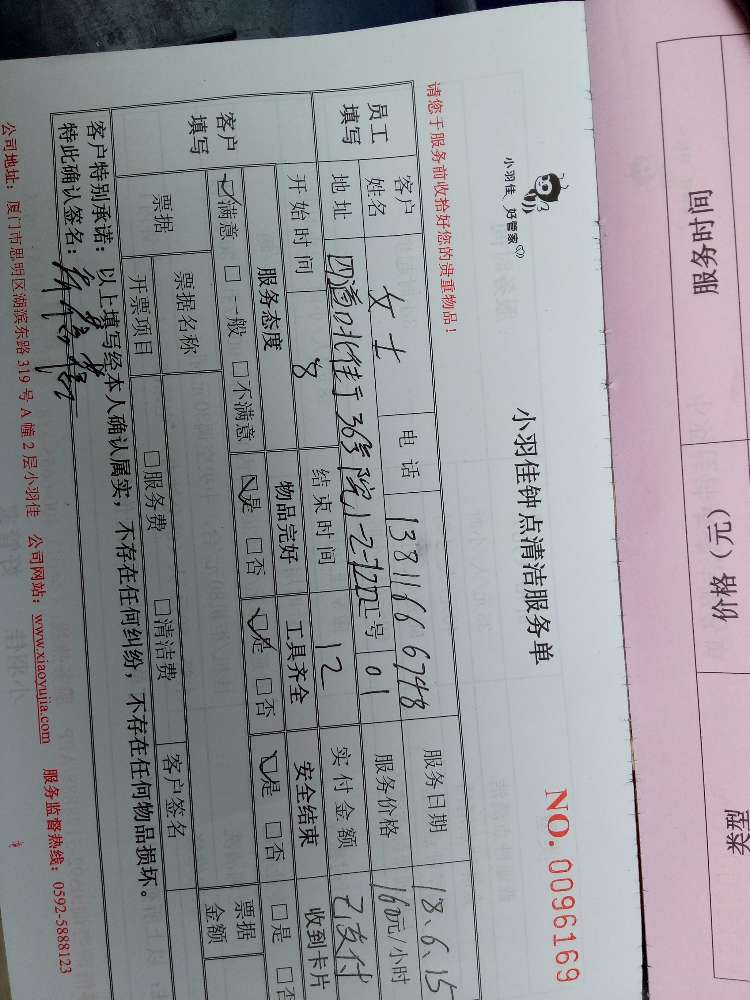 小羽佳 好管家
小羽佳钟点清洁服务单
NO. 0096169
请您于服务前收拾好您的贵重物品！
员工填写 客户姓名 女士 电话 13811666748 服务日期 18.6.15
地址 四道口北街 36号院 服务价格 元/小时
开始时间 8 结束时间 12 实付金额 已支付
客户填写 服务态度 物品完好 工具齐全 安全结束 收到卡片
☑满意 □一般 □不满意 ☑是 □否 ☑是 □否 ☑是 □否 □是 □否
票据 票据名称 □服务费 □清洁费 客户签名 票据金额
开票项目
客户特别承诺：以上填写经本人确认属实，不存在任何纠纷，不存在任何物品损坏。
特此确认签名：
公司地址：厦门市思明区湖滨东路 319 号 A 幢 2 层小羽佳 公司网站：www.xiaoyujia.com 服务监督热线：0592-5888123
服务时间
价格（元）
类型